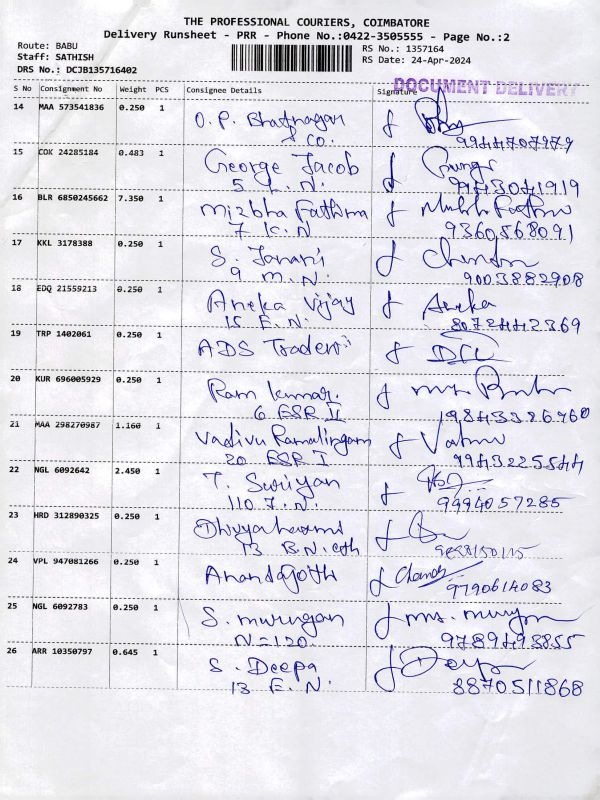 THE PROFESSIONAL COURIERS, COIMBATORE
Delivery Runsheet - PRR - Phone No.:0422-3505555 - Page No.:2
Route: BABU
Staff: SATHISH
DRS No.: DCJB135716402
RS No.: 1357164
RS Date: 24-Apr-2024
DOCUMENT DELIVERY
S No Consignment No Weight PCS Consignee Details Signature
14 MAA 573541836 0.250 1 O. P. Bhatnagar
& Co. 9944707979
15 COK 24285184 0.483 1 George Jacob
5 L. N. 9943041919
16 BLR 6850245662 7.350 1 Mizbha Fathima
7 K. N 9360568091
17 KKL 3178388 0.250 1 S. Janani
9 M. N. 9003882908
18 EDQ 21559213 0.250 1 Aneka Vijay Aneka
15 E. N. 8072442369
19 TRP 1402061 0.250 1 ADS Traders
20 KUR 696005929 0.250 1 Ram Kumar.
6 ESR II 9843326760
21 MAA 298270987 1.160 1 Vadivu Ramalingam
20 ESR I 9943225544
22 NGL 6092642 2.450 1 T. Suriyan
110 7. N. 9994057285
23 HRD 312890325 0.250 1 Dhivyalaxmi
13 B.N.
24 VPL 947081266 0.250 1 Anandajothi
9790614083
25 NGL 6092783 0.250 1 S. Murugan
N=120. 9789493855
26 ARR 10350797 0.645 1 S. Deepa Deepa
13 E. N. 8870511868